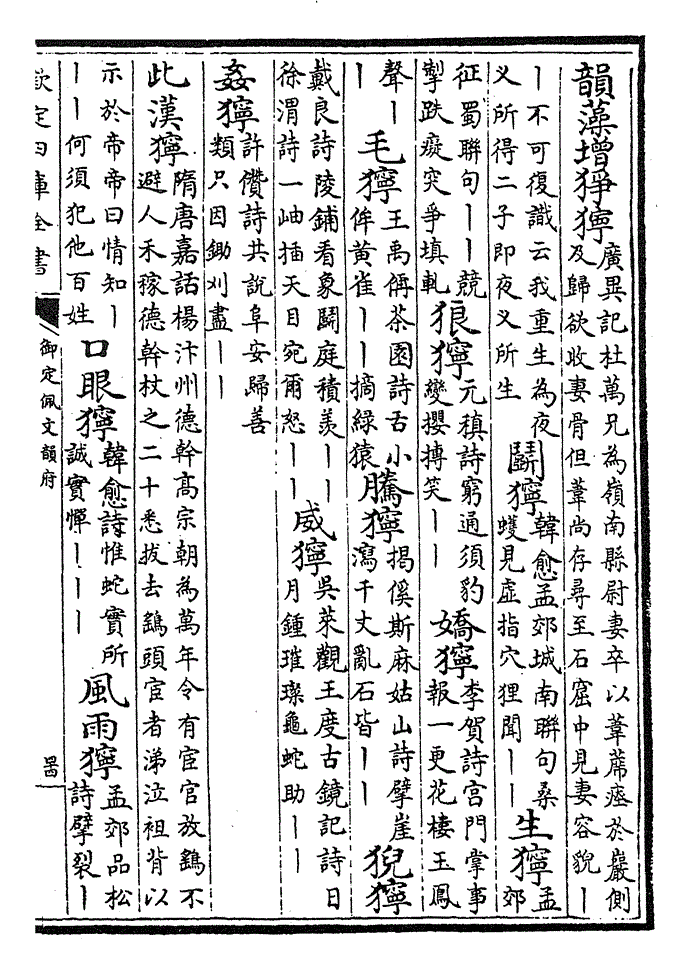 韻藻增猙獰廣異記杜萬兄為嶺南縣尉妻卒以葦蓆瘞於巖側
及歸欲收妻骨但葦尚存尋至石窟中見妻容貌丨
丨不可復識云我重生為夜
乂所得二子即夜乂所生
鬬獰韓愈孟郊城南聯句桑
蠖見虛指穴狸聞丨丨
生獰孟
郊
征蜀聯句丨丨競
掣跌癡突爭填軋
狼獰元稹詩窮通須豹
變攖搏笑丨丨
嬌獰李賀詩宮門掌事
報一更花樓玉鳳
聲丨
丨
毛獰王禹偁茶園詩舌小
侔黃雀丨丨摘綠猿
騰獰揭傒斯麻姑山詩擘崖
瀉千丈亂石皆丨丨
猊獰
戴良詩陵鋪看象鬬庭積羨丨丨
徐渭詩一岫插天目宛爾怒丨丨
威獰吳萊觀王度古鏡記詩日
月鍾璀璨龜蛇助丨丨
姦獰許儹詩共說阜安歸善
類只因鋤刈盡丨丨
此漢獰隋唐嘉話楊汴州德幹高宗朝為萬年令有宦官放鷂不
避人禾稼德幹杖之二十悉拔去鷂頭宦者涕泣袒背以
示於帝帝曰情知丨
丨丨何須犯他百姓
口眼獰韓愈詩惟蛇實所
誠實憚丨丨丨
風雨獰孟郊品松
詩擘裂丨
欽定四庫全書
御定佩文韻府